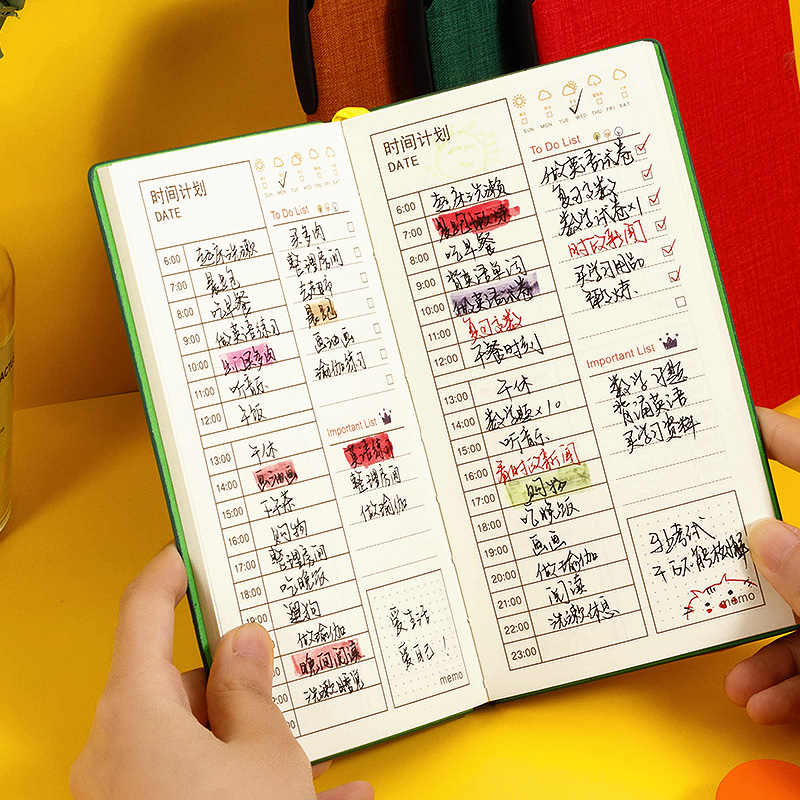 时间计划
DATE
SUN MON TUE WED THU FRI SAT
To Do List
买多肉
整理房间
去超市
晨跑
画油画
瑜伽练习
6:00 起床洗漱
7:00 晨跑
8:00 吃早餐
9:00 做英语练习
10:00
11:00 听音乐
12:00 午饭
Important List
英语练习
整理房间
做瑜伽
13:00 午休
14:00 画油画
15:00 下午茶
16:00 购物
17:00 整理房间
18:00 吃晚饭
19:00 遛狗
做瑜伽
晚间阅读
洗漱睡觉
爱生活
爱自己！
memo
时间计划
DATE
SUN MON TUE WED THU FRI SAT
To Do List
做英语试卷
复习高数
数学试卷x1
时政新闻
买学习用品
6:00 起床洗漱
7:00
8:00 吃早餐
9:00 背英语单词
10:00 做英语试卷
11:00 复习高数
12:00 午餐时刻
Important List
数学习题
背诵英语
买学习资料
13:00 午休
14:00 数学题x10
15:00 听音乐
16:00 看时政新闻
17:00 购物
18:00 吃晚饭
19:00 画画
20:00 做瑜伽
21:00 阅读
22:00 洗漱休息
23:00
马上考试
千万不能松懈
memo